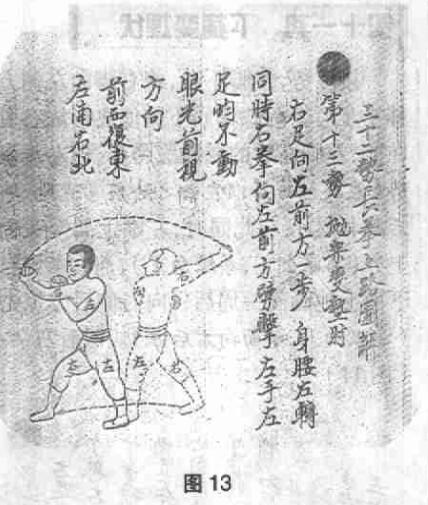 三十二勢長拳上路圖解
第十三勢 拋架 肘
右足向左前方一步 身腰左轉
同時右拳向左前方劈擊 左手左
足均不動
眼光前視
方向
前西後東
左南右北
右
左
右
左
左
右
图 13